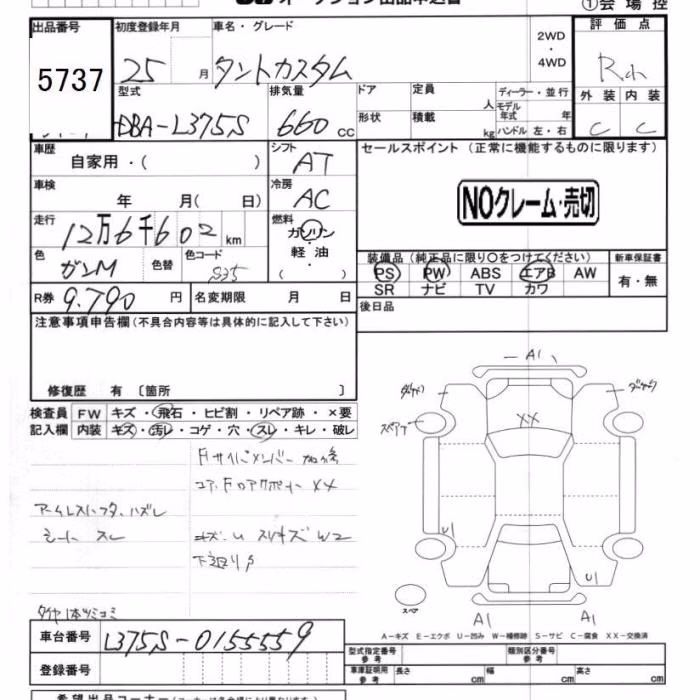 オークション出品申込書
①会場控
出品番号
5737
初度登録年月
25 月
車名・グレード
タントカスタム
2WD
・
4WD
評価点
型式
DBA-L375S
排気量
660 cc
ドア
定員
人
ディーラー・並行
モデル年式 年
形状
積載
kg
ハンドル 左・右
外装 内装
C C
車歴
自家用・( )
シフト
AT
セールスポイント (正常に機能するものに限ります)
車検
年 月( 日)
冷房
AC
NOクレーム・売切
走行
12万6千602 km
燃料
ガソリン
・
軽油
( )
色
ガンM
色替
色コード
S35
装備品 (純正品に限り○をつけてください)
PS PW ABS エアB AW
SR ナビ TV カワ
新車保証書
有・無
R券
9.790 円
名変期限 月 日
後日品
注意事項申告欄(不具合内容等は具体的に記入して下さい)
修復歴 有 〔箇所 〕
検査員記入欄
FW キズ・飛石・ヒビ割・リペア跡・×要
内装 キズ・汚レ・コゲ・穴・スレ・キレ・破レ
アームレストフタ、ハズレ
シート スレ
キズ・U スリキズ W2
下廻りS
タイヤ1本ツミコミ
A1
XX
U1
U1
スペア
A1
A1
A-キズ E-エクボ U-凹み W-補修跡 S-サビ C-腐食 XX-交換済
車台番号
L375S-0155559
登録番号
型式指定番号
参考
類別区分番号
参考
車庫証明用
参考
長さ cm
幅 cm
高さ cm
希望出品コーナー